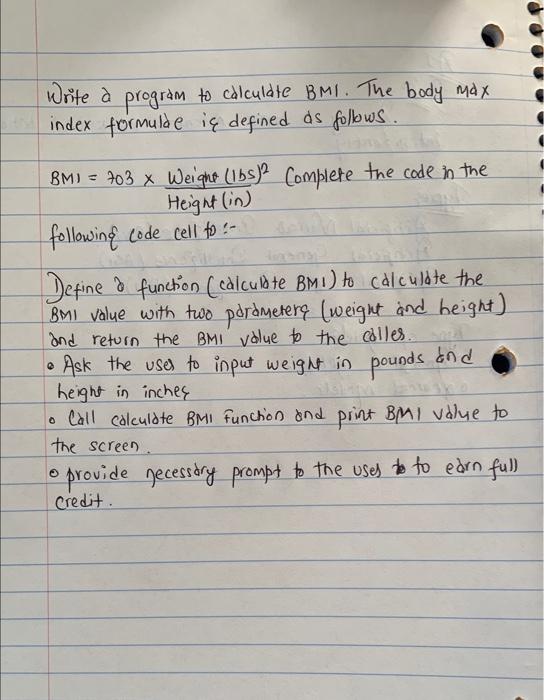 Write a program to calculate BMI. The body max
index formulae is defined as follows.
BMI = 703 x Weight (lbs)² Complete the code in the
Height (in)
following code cell to :-
Define a function (calculate BMI) to calculate the
BMI value with two parameters (weight and height)
and return the BMI value to the caller.
• Ask the user to input weight in pounds and
height in inches
• Call calculate BMI function and print BMI value to
the screen.
• provide necessary prompt to the user to to earn full
credit.